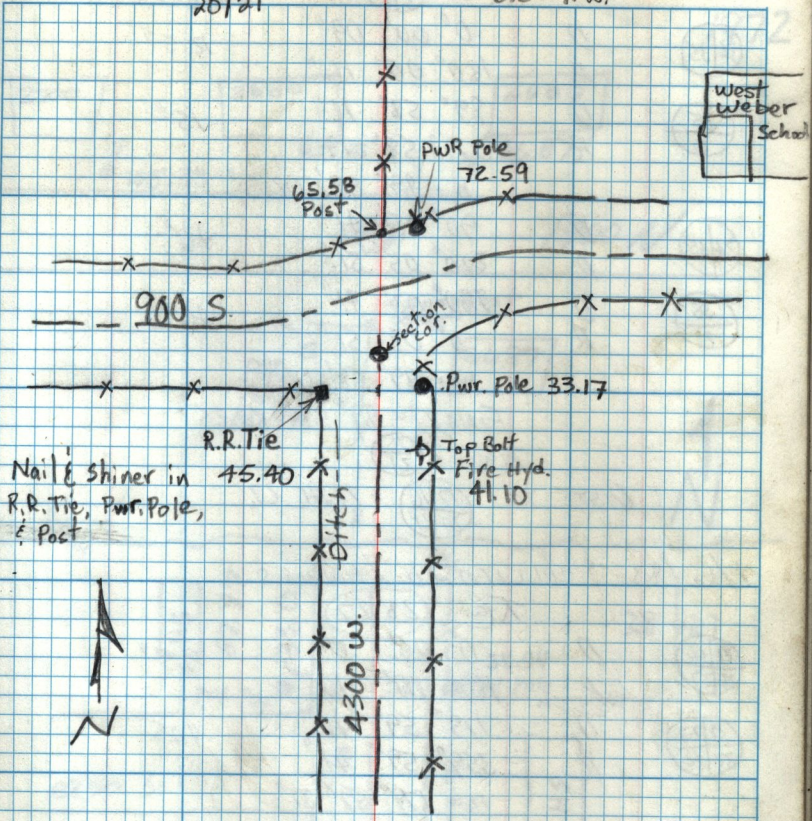 20/21
West
Weber
School
PWR Pole
72.59
65.58
Post
900 S.
section
cor.
Pwr. Pole 33.17
R.R. Tie
45.40
Top Bolt
Fire Hyd.
41.10
Nail & Shiner in
R.R. Tie, Pwr. Pole,
& Post
Ditch
4300 W.
N